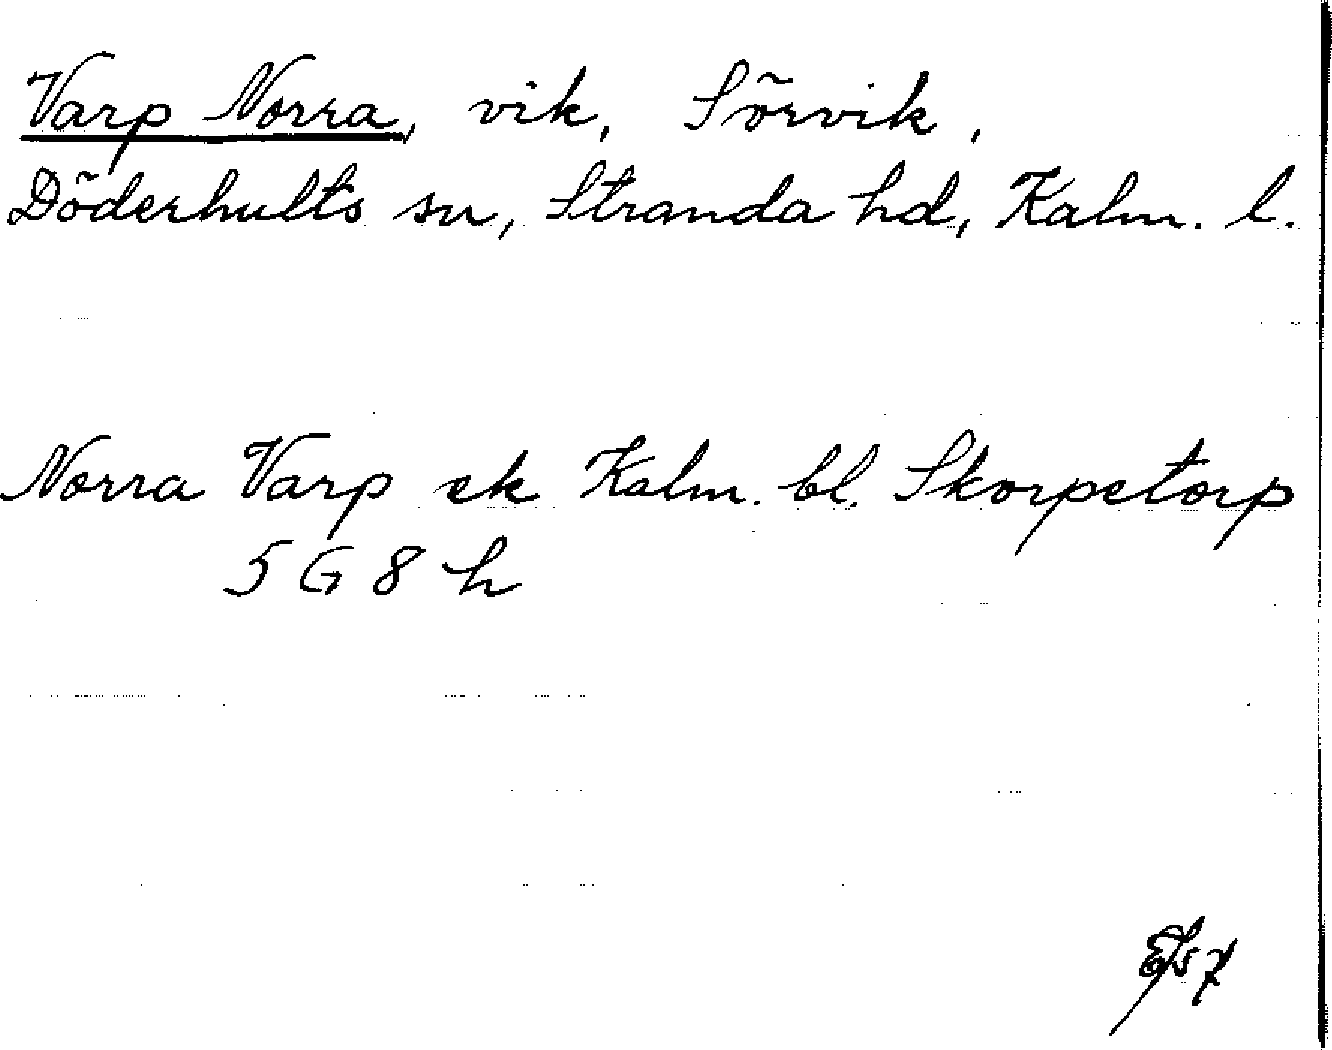 Varp Norra, vik, Sörvik,
Döderhults sn, Stranda hd, Kalm. l.
Norra Varp ek Kalm. bl. Skorpetorp
5 G 8 h